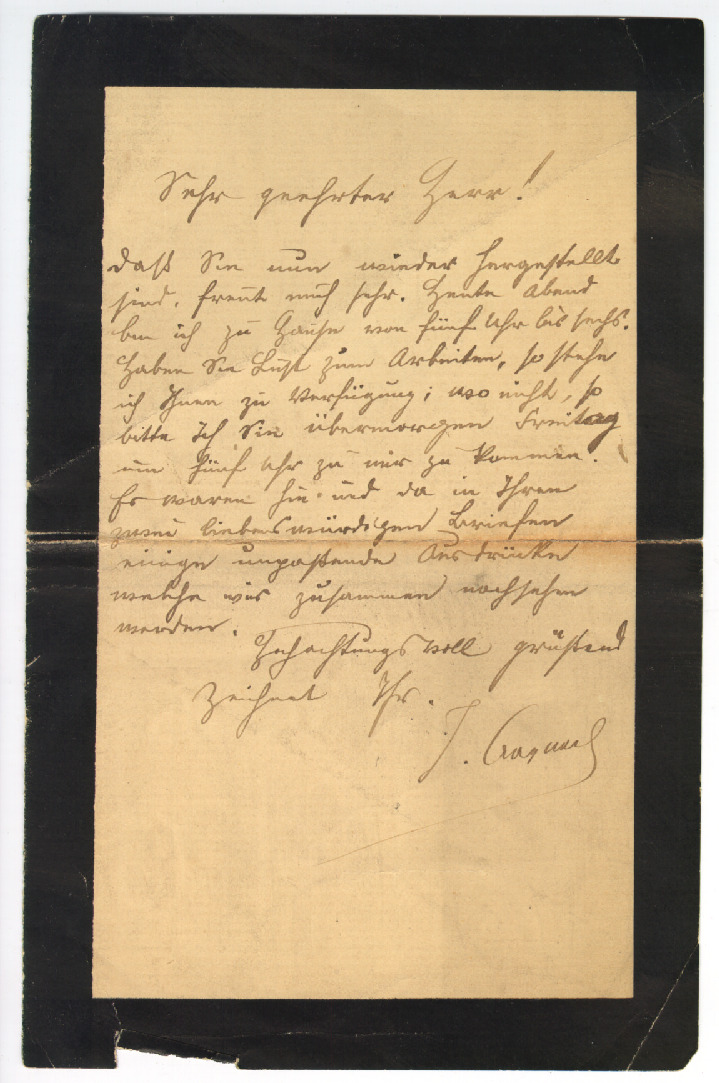 Sehr geehrter Herr!
Daß Sie nun wieder hergestellt
sind, freut mich sehr. Heute Abend
bin ich zu Hause von fünf Uhr bis sechs.
Haben Sie Lust zum Arbeiten, so stehe
ich Ihnen zu Verfügung; wo nicht, so
bitte Ich Sie übermorgen Freitag
um fünf Uhr zu mir zu kommen.
Es waren hie und da in Ihren
zwei liebenswürdigen Briefen
einige unpaßende Ausdrücke
welche wir zusammen nachsehen
werden.
Hochachtungsvoll grüßend
Zeichnet Ihr.
J.